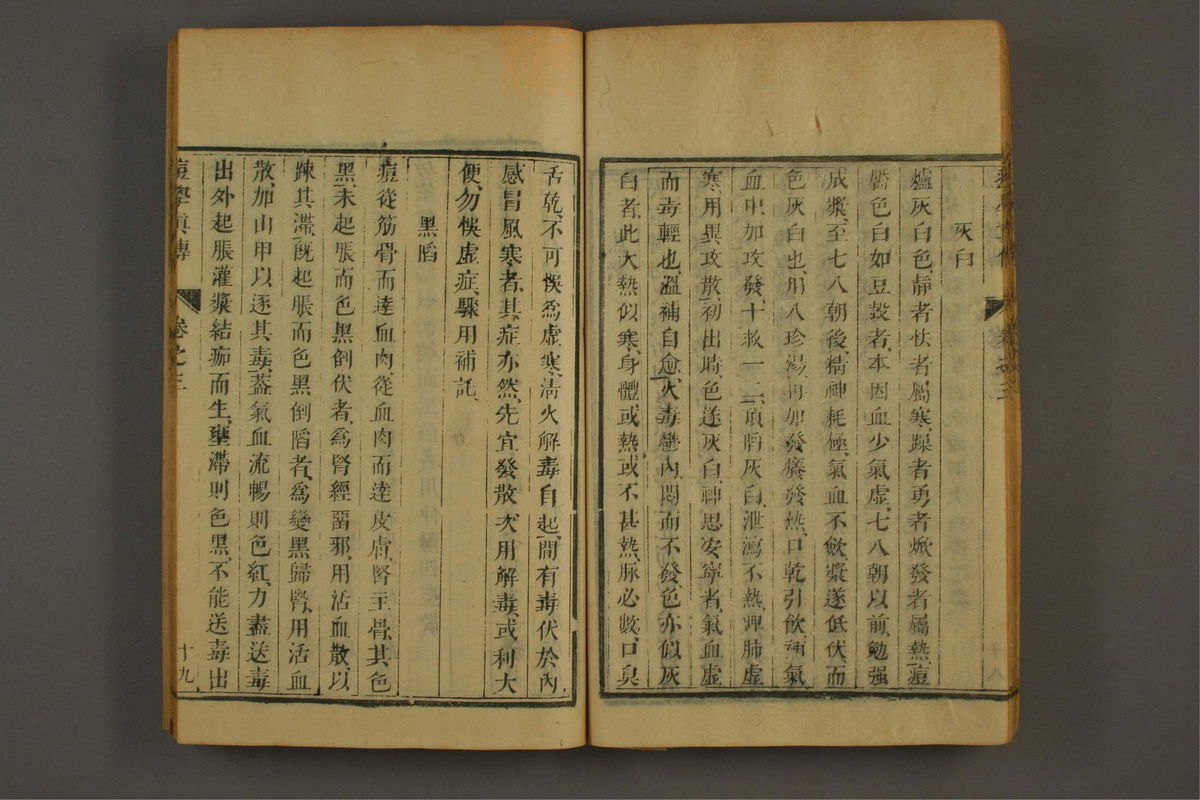 灰白
爐灰白色、靜者怯者屬寒、躁者勇者焮發者屬熱、痘
靨色白如豆殼者、本因血少氣虛、七八朝以前、勉强
成漿、至七八朝後、精神耗極、氣血不飲、漿遂低伏、而
色灰白也、用八珍湯、再加發癢發熱、口乾引飲、補氣
血中加攻發、十救一二、頂陷灰白、泄瀉不熱、脾肺虛
寒、用異攻散、初出時、色遂灰白、神思安寧者、氣血虛
而毒輕也、溫補自愈、火毒鬱內、悶而不發、色亦似灰
白者、此大熱似寒、身體或熱、或不甚熱、脉必數、口臭
十八
舌乾、不可悞爲虛寒、清火解毒自起、間有毒伏於內、
感冒風寒者、其症亦然、先宜發散、次用解毒、或利大
便、勿悞虛症、驟用補託、
黑陷
痘從筋骨而達血肉、從血肉而達皮膚、腎主骨、其色
黑、未起脹而色黑倒伏者、爲腎經留邪、用活血散、以
踈其滯、旣起脹而色黑倒陷者、爲變黑歸腎、用活血
散、加山甲以逐其毒、蓋氣血流暢則色紅、力盡送毒
出外、起脹灌漿結痂而生、壅滯則色黑、不能送毒出
痘學眞傳
卷之三
十九